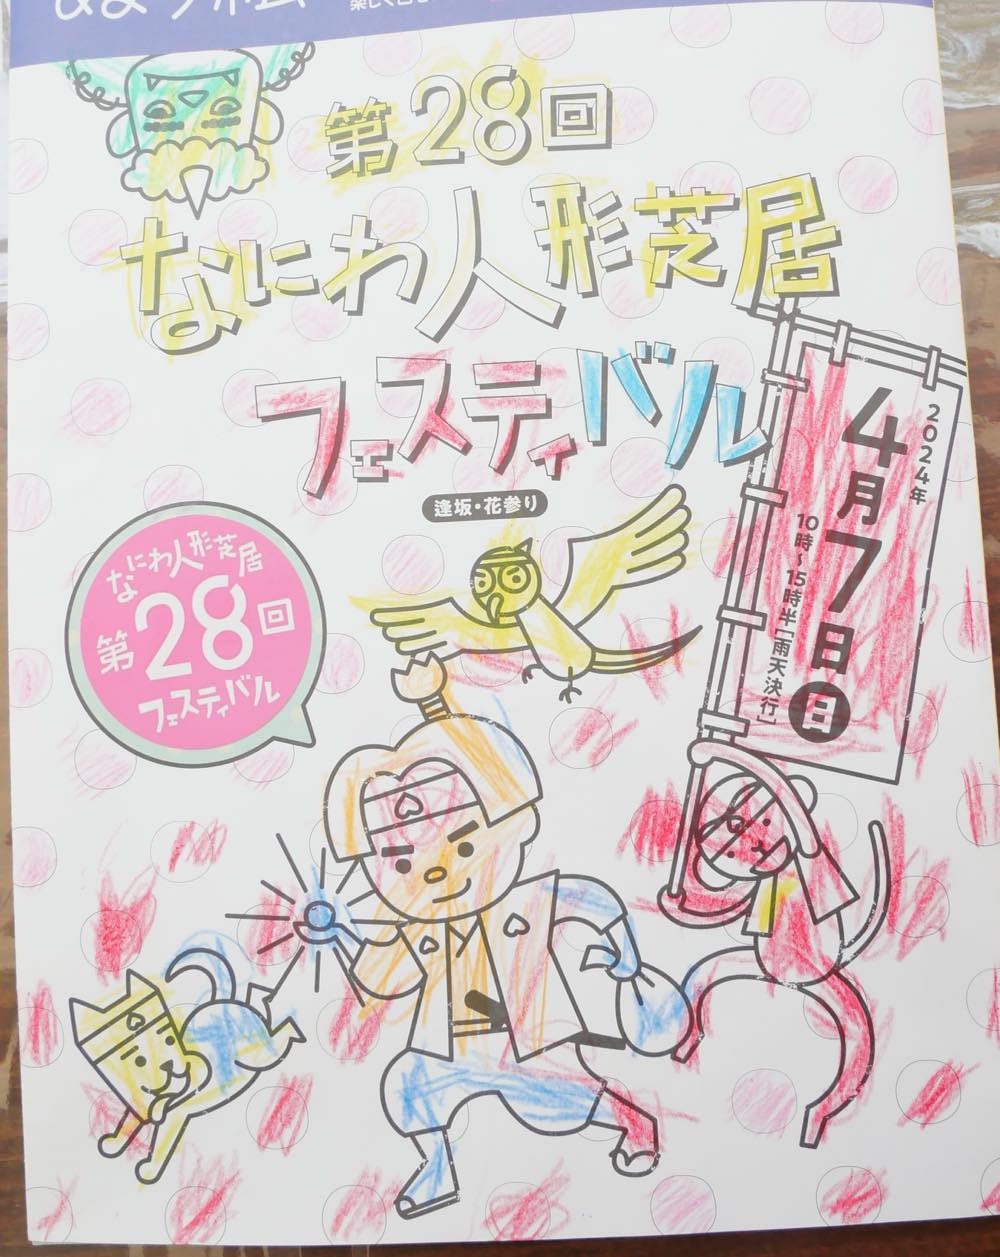 第28回
なにわ人形芝居
フェスティバル
逢坂・花参り
2024年
4月7日日
10時〜15時半[雨天決行]
なにわ人形芝居
第28回
フェスティバル